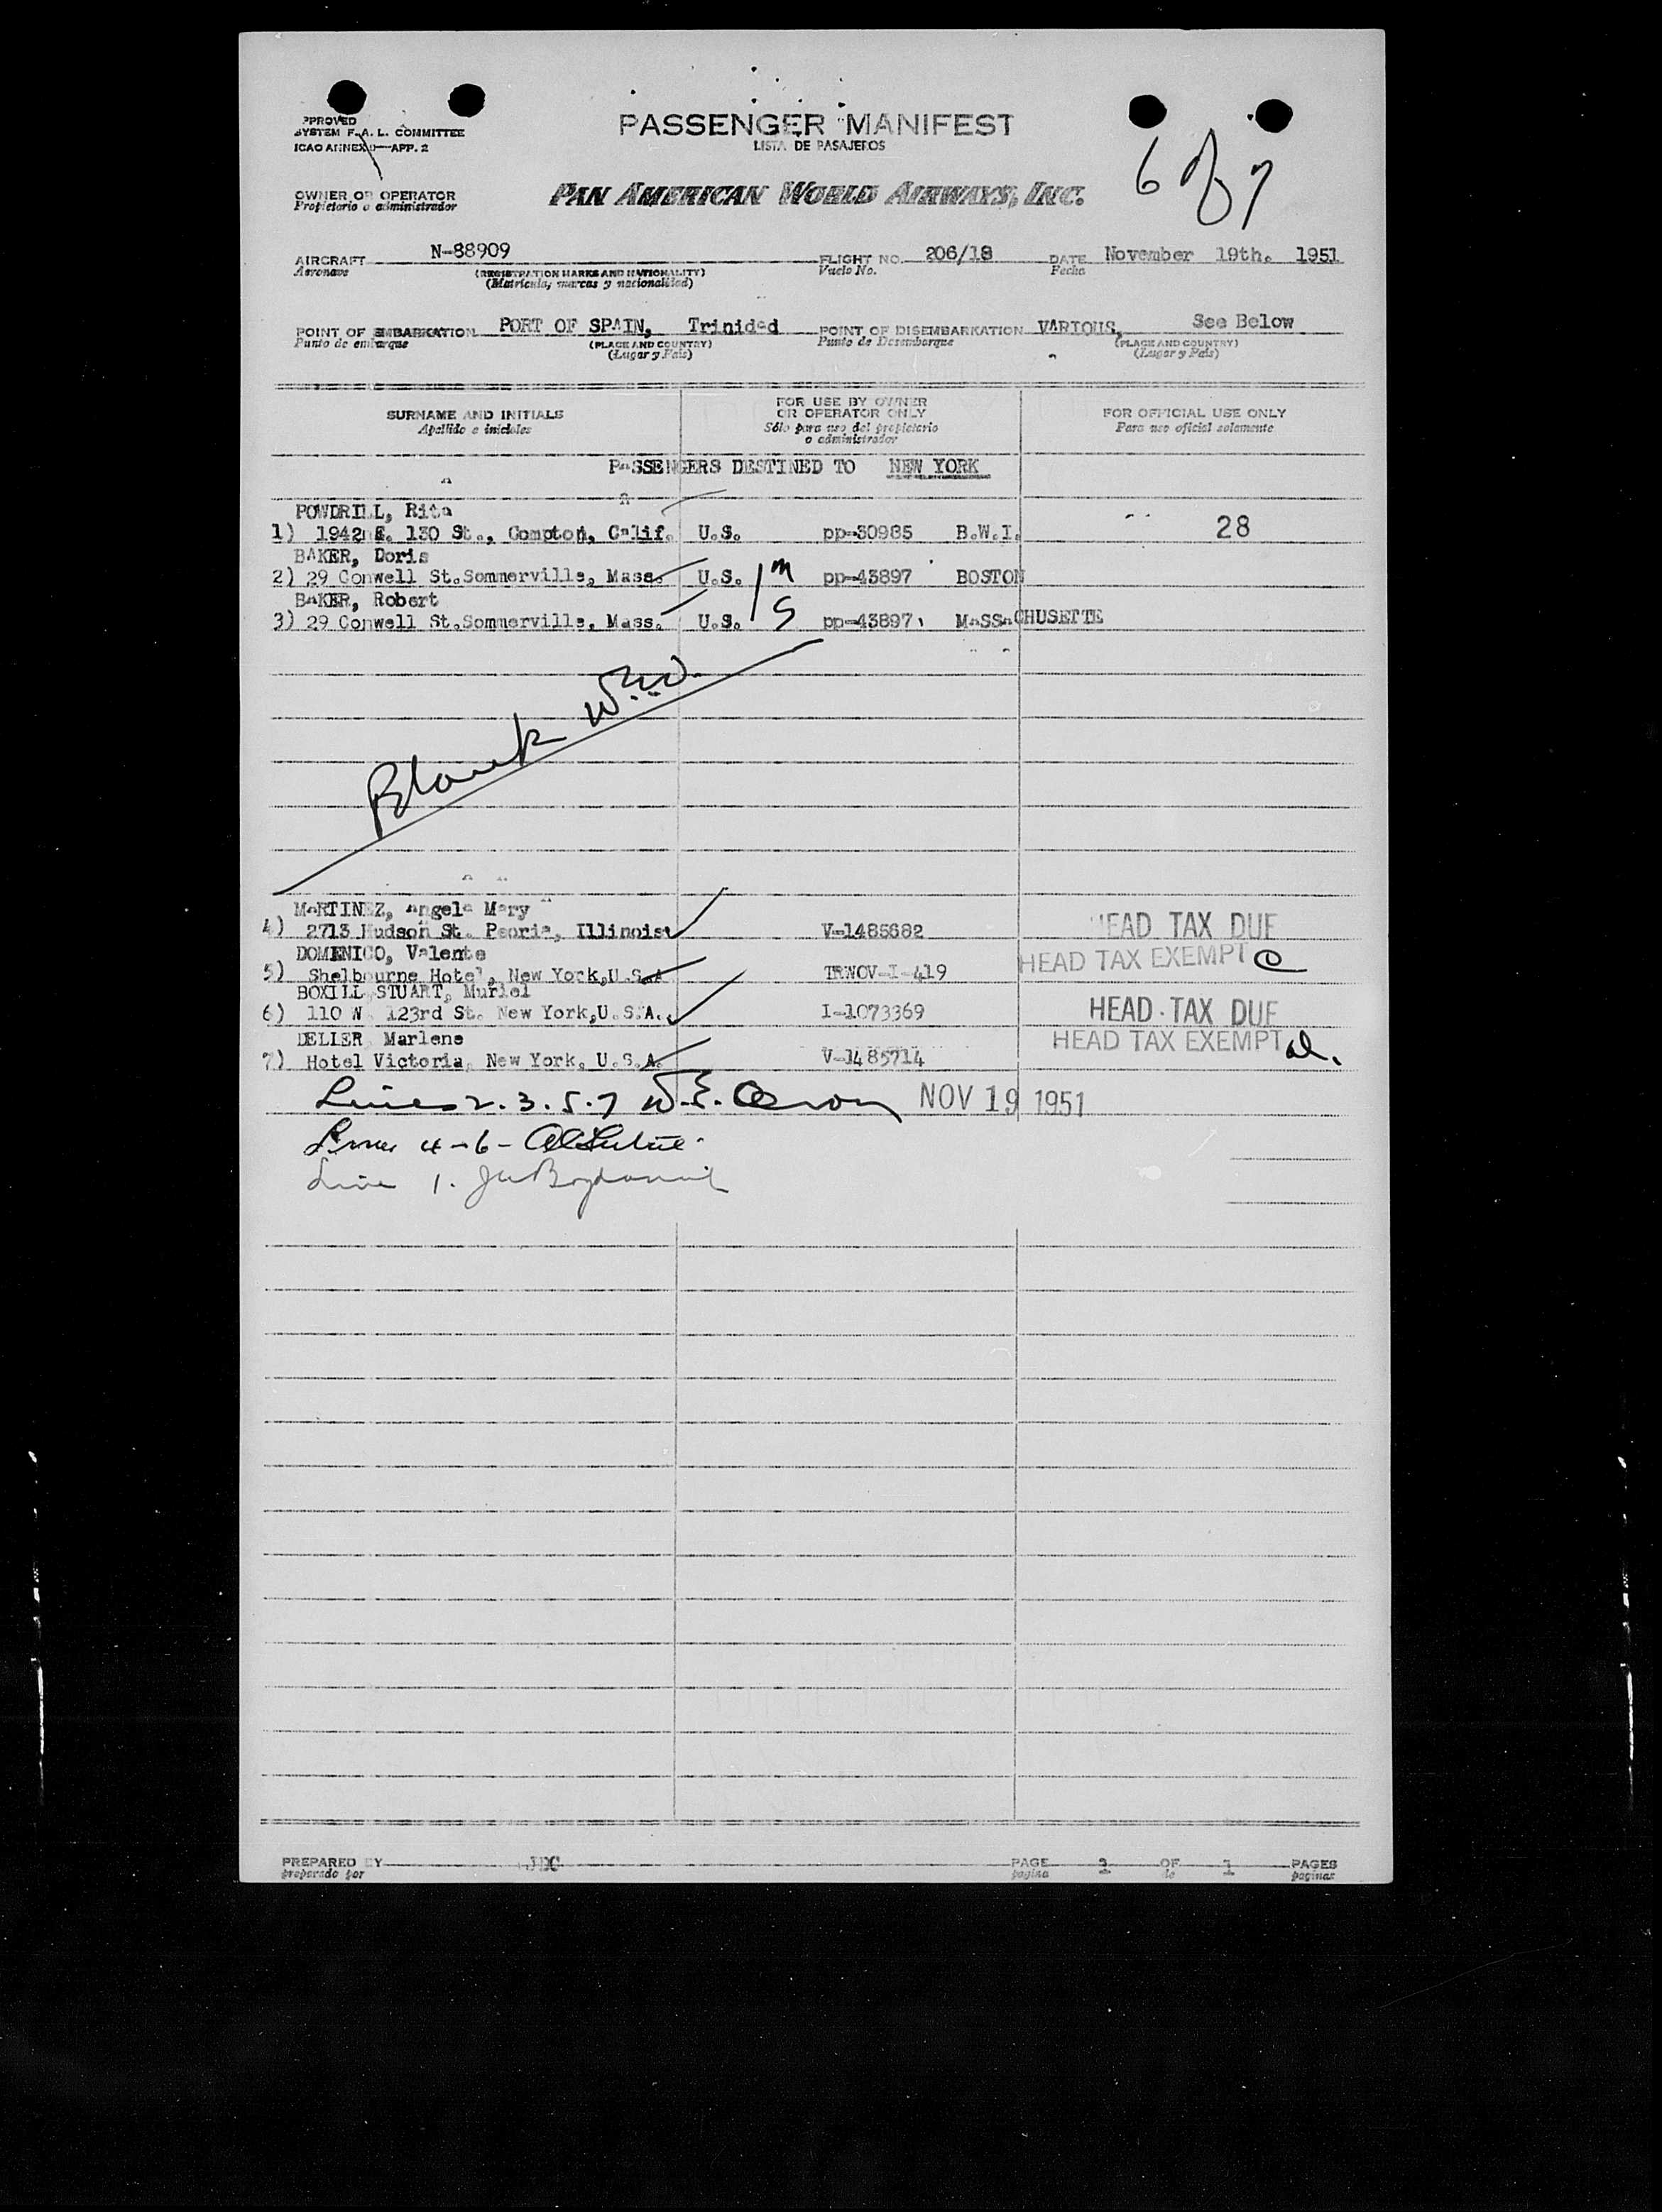 PPROVED
SYSTEM F.A.L. COMMITTEE
ICAO ANNEX 9—APP. 2
PASSENGER MANIFEST
LISTA DE PASAJEROS
6 of 7
OWNER OR OPERATOR
Propietario o administrador
PAN AMERICAN WORLD AIRWAYS, INC.
AIRCRAFT N-88909 FLIGHT NO. 206/18 DATE November 19th. 1951
Aeronave (REGISTRATION MARKS AND NATIONALITY) Vuelo No. Fecha
(Matrícula, marcas y nacionalidad)
POINT OF EMBARKATION PORT OF SPAIN, Trinidad POINT OF DISEMBARKATION VARIOUS, See Below
Punto de embarque (PLACE AND COUNTRY) Punto de Desembarque (PLACE AND COUNTRY)
(Lugar y País) (Lugar y País)
SURNAME AND INITIALS FOR USE BY OWNER OR OPERATOR ONLY FOR OFFICIAL USE ONLY
Apellido e iniciales Sólo para uso del propietario o administrador Para uso oficial solamente
PASSENGERS DESTINED TO NEW YORK
POWDRILL, Rita
1) 1942 E. 130 St., Compton, Calif. U.S. pp-30985 B.W.I. 28
BAKER, Doris
2) 29 Conwell St.Sommerville, Mass. U.S. 1 M pp-43897 BOSTON
BAKER, Robert
3) 29 Conwell St.Sommerville, Mass. U.S. S pp-43897 MASSACHUSETTE
Blank
MARTINEZ, Angela Mary
4) 2713 Hudson St. Peoria, Illinois V-1485682 HEAD TAX DUE
DOMENICO, Valente
5) Shelbourne Hotel, New York,U.S.A TRWOV-I-419 HEAD TAX EXEMPT C
BOXILL STUART, Muriel
6) 110 W. 123rd St. New York,U.S.A. I-1073369 HEAD TAX DUE
DELLER Marlene
7) Hotel Victoria, New York, U.S.A. V-1485714 HEAD TAX EXEMPT
Lines 2.3.5.7 NOV 19 1951
Lines 4-6-
Line 1.
PREPARED BY JDC PAGE 1 OF 1 PAGES
preparado por pagina de paginas